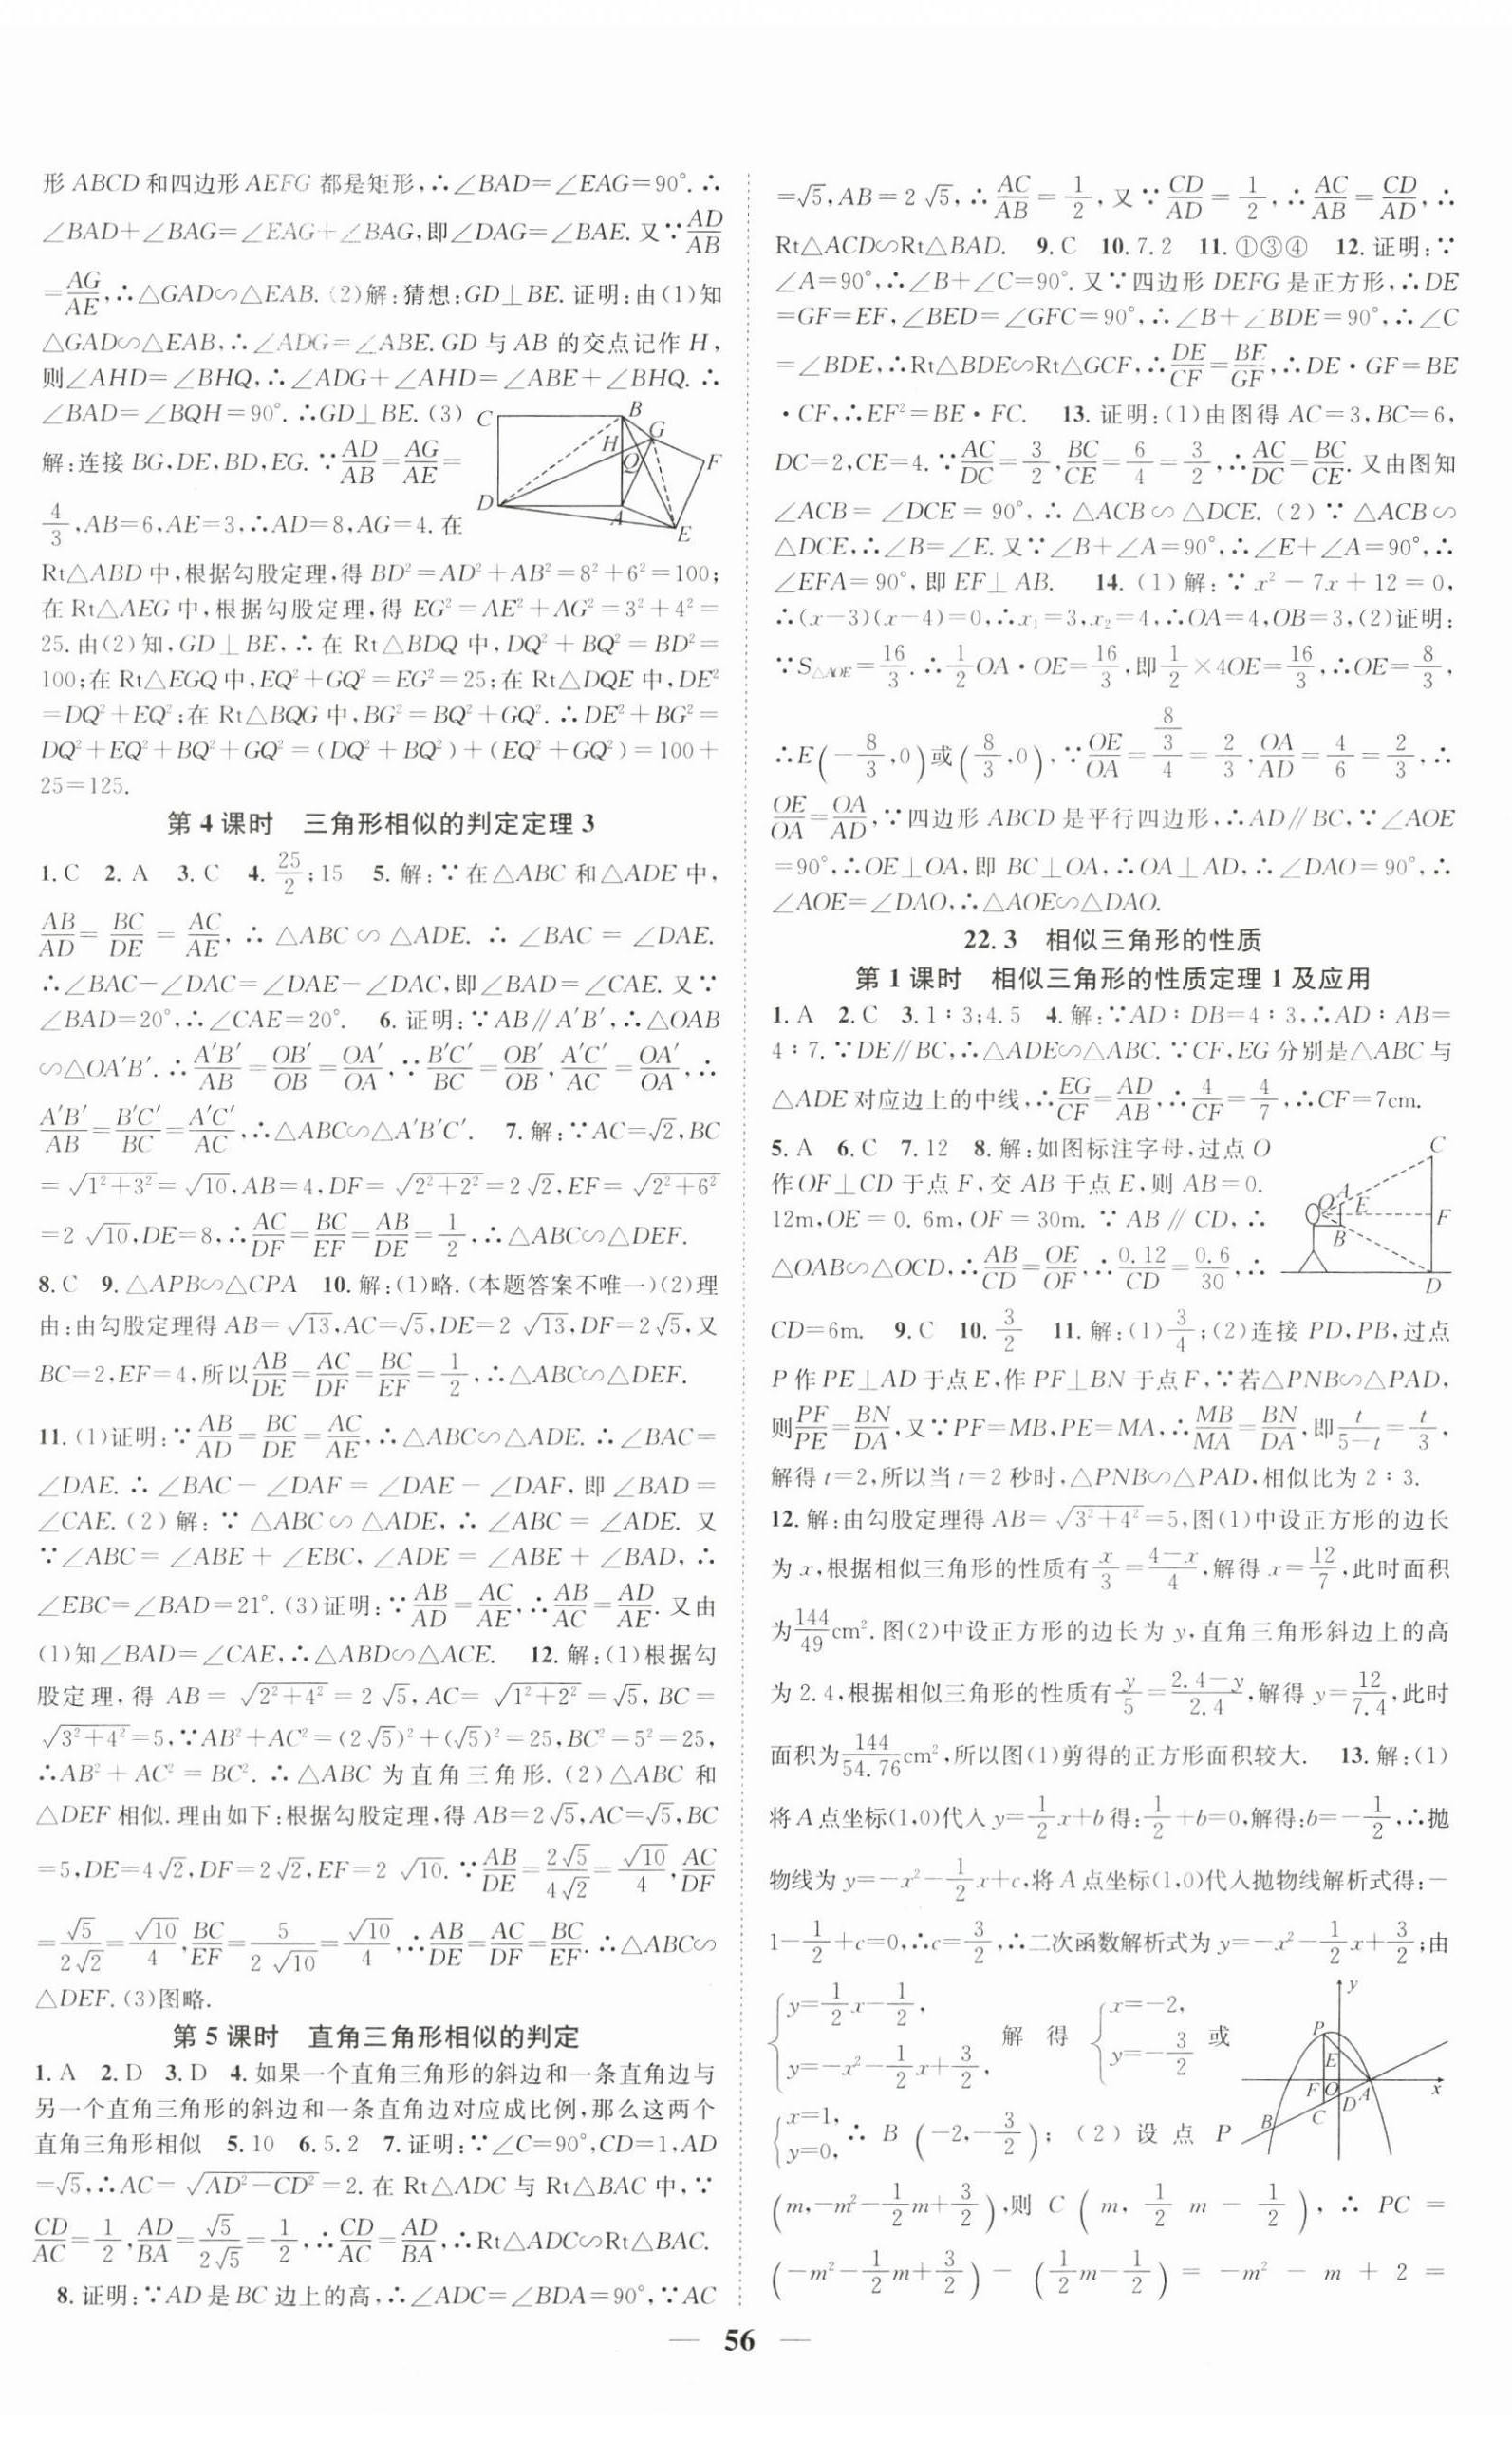 形 ABCD 和四边形 AEFG 都是矩形,∴∠BAD=∠EAG=90°.∴
∠BAD+∠BAG=∠EAG+∠BAG,即∠DAG=∠BAE.又∵AD/AB
=AG/AE,∴△GAD∽△EAB.(2)解:猜想:GD⊥BE.证明:由(1)知
△GAD∽△EAB,∴∠ADG=∠ABE.GD 与 AB 的交点记作 H,
则∠AHD=∠BHQ,∴∠ADG+∠AHD=∠ABE+∠BHQ.∴
∠BAD=∠BQH=90°.∴GD⊥BE.(3)
解:连接 BG,DE,BD,EG.∵AD/AB=AG/AE=
4/3,AB=6,AE=3,∴AD=8,AG=4.在
C B H G Q F D A E
Rt△ABD 中,根据勾股定理,得 BD²=AD²+AB²=8²+6²=100;
在 Rt△AEG 中,根据勾股定理,得 EG²=AE²+AG²=3²+4²=
25.由(2)知,GD⊥BE,∴在 Rt△BDQ 中,DQ²+BQ²=BD²=
100;在 Rt△EGQ 中,EQ²+GQ²=EG²=25;在 Rt△DQE 中,DE²
=DQ²+EQ²;在 Rt△BQG 中,BG²=BQ²+GQ².∴DE²+BG²=
DQ²+EQ²+BQ²+GQ²=(DQ²+BQ²)+(EQ²+GQ²)=100+
25=125.
第 4 课时 三角形相似的判定定理 3
1.C 2.A 3.C 4.25/2;15 5.解:∵在△ABC 和△ADE 中,
AB/AD=BC/DE=AC/AE,∴△ABC∽△ADE.∴∠BAC=∠DAE.
∴∠BAC-∠DAC=∠DAE-∠DAC,即∠BAD=∠CAE.又∵
∠BAD=20°,∴∠CAE=20°. 6.证明:∵AB∥A′B′,∴△OAB
∽△OA′B′.∴A′B′/AB=OB′/OB=OA′/OA,∵B′C′/BC=OB′/OB,A′C′/AC=OA′/OA,∴
A′B′/AB=B′C′/BC=A′C′/AC,∴△ABC∽△A′B′C′. 7.解:∵AC=√2,BC
=√(1²+3²)=√10,AB=4,DF=√(2²+2²)=2√2,EF=√(2²+6²)
=2√10,DE=8,∴AC/DF=BC/EF=AB/DE=1/2,∴△ABC∽△DEF.
8.C 9.△APB∽△CPA 10.解:(1)略.(本题答案不唯一)(2)理
由:由勾股定理得 AB=√13,AC=√5,DE=2√13,DF=2√5,又
BC=2,EF=4,所以AB/DE=AC/DF=BC/EF=1/2,∴△ABC∽△DEF.
11.(1)证明:∵AB/AD=BC/DE=AC/AE,∴△ABC∽△ADE.∴∠BAC=
∠DAE.∴∠BAC-∠DAF=∠DAE-∠DAF,即∠BAD=
∠CAE.(2)解:∵△ABC∽△ADE,∴∠ABC=∠ADE.又
∵∠ABC=∠ABE+∠EBC,∠ADE=∠ABE+∠BAD,∴
∠EBC=∠BAD=21°.(3)证明:∵AB/AD=AC/AE,∴AB/AC=AD/AE.又由
(1)知∠BAD=∠CAE,∴△ABD∽△ACE. 12.解:(1)根据勾
股定理,得 AB=√(2²+4²)=2√5,AC=√(1²+2²)=√5,BC=
√(3²+4²)=5,∵AB²+AC²=(2√5)²+(√5)²=25,BC²=5²=25,
∴AB²+AC²=BC².∴△ABC 为直角三角形.(2)△ABC 和
△DEF 相似.理由如下:根据勾股定理,得 AB=2√5,AC=√5,BC
=5,DE=4√2,DF=2√2,EF=2√10.∵AB/DE=2√5/4√2=√10/4,AC/DF
=√5/2√2=√10/4,BC/EF=5/2√10=√10/4,∴AB/DE=AC/DF=BC/EF.∴△ABC∽
△DEF.(3)图略.
第 5 课时 直角三角形相似的判定
1.A 2.D 3.D 4.如果一个直角三角形的斜边和一条直角边与
另一个直角三角形的斜边和一条直角边对应成比例,那么这两个
直角三角形相似 5.10 6.5.2 7.证明:∵∠C=90°,CD=1,AD
=√5,∴AC=√(AD²-CD²)=2.在 Rt△ADC 与 Rt△BAC 中,∵
CD/AC=1/2,AD/BA=√5/2√5=1/2,∴CD/AC=AD/BA,∴Rt△ADC∽Rt△BAC.
8.证明:∵AD 是 BC 边上的高,∴∠ADC=∠BDA=90°,∵AC
=√5,AB=2√5,∴AC/AB=1/2,又∵CD/AD=1/2,∴AC/AB=CD/AD,∴
Rt△ACD∽Rt△BAD. 9.C 10.7.2 11.①③④ 12.证明:∵
∠A=90°,∴∠B+∠C=90°.又∵四边形 DEFG 是正方形,∴DE
=GF=EF,∠BED=∠GFC=90°,∴∠B+∠BDE=90°,∴∠C
=∠BDE,∴Rt△BDE∽Rt△GCF,∴DE/CF=BE/GF,∴DE·GF=BE
·CF,∴EF²=BE·FC. 13.证明:(1)由图得 AC=3,BC=6,
DC=2,CE=4.∵AC/DC=3/2,BC/CE=6/4=3/2,∴AC/DC=BC/CE.又由图知
∠ACB=∠DCE=90°,∴△ACB∽△DCE.(2)∵△ACB∽
△DCE,∴∠B=∠E.又∵∠B+∠A=90°,∴∠E+∠A=90°,∴
∠EFA=90°,即 EF⊥AB. 14.(1)解:∵x²-7x+12=0,
∴(x-3)(x-4)=0,∴x₁=3,x₂=4,∴OA=4,OB=3,(2)证明:
∵S△AOE=16/3.∴1/2OA·OE=16/3,即1/2×4OE=16/3,∴OE=8/3,
∴E(-8/3,0)或(8/3,0),∵OE/OA=(8/3)/4=2/3,OA/AD=4/6=2/3,∴
OE/OA=OA/AD,∵四边形 ABCD 是平行四边形,∴AD∥BC,∵∠AOE
=90°,∴OE⊥OA,即 BC⊥OA,∴OA⊥AD,∴∠DAO=90°,∴
∠AOE=∠DAO,∴△AOE∽△DAO.
22.3 相似三角形的性质
第 1 课时 相似三角形的性质定理 1 及应用
1.A 2.C 3.1∶3;4.5 4.解:∵AD∶DB=4∶3,∴AD∶AB=
4∶7.∵DE∥BC,∴△ADE∽△ABC.∵CF,EG 分别是△ABC 与
△ADE 对应边上的中线,∴EG/CF=AD/AB,∴4/CF=4/7,∴CF=7cm.
5.A 6.C 7.12 8.解:如图标注字母,过点 O
作 OF⊥CD 于点 F,交 AB 于点 E,则 AB=0.
12m,OE=0.6m,OF=30m.∵AB∥CD,∴
△OAB∽△OCD,∴AB/CD=OE/OF,∴0.12/CD=0.6/30,∴
C O A E F B D
CD=6m. 9.C 10.3/2 11.解:(1)3/4;(2)连接 PD,PB,过点
P 作 PE⊥AD 于点 E,作 PF⊥BN 于点 F,∵若△PNB∽△PAD,
则PF/PE=BN/DA,又∵PF=MB,PE=MA,∴MB/MA=BN/DA,即t/(5-t)=t/3,
解得 t=2,所以当 t=2 秒时,△PNB∽△PAD,相似比为 2∶3.
12.解:由勾股定理得 AB=√(3²+4²)=5,图(1)中设正方形的边长
为 x,根据相似三角形的性质有x/3=(4-x)/4,解得 x=12/7,此时面积
为144/49cm².图(2)中设正方形的边长为 y,直角三角形斜边上的高
为 2.4,根据相似三角形的性质有y/5=(2.4-y)/2.4,解得 y=12/7.4,此时
面积为144/54.76cm²,所以图(1)剪得的正方形面积较大. 13.解:(1)
将 A 点坐标(1,0)代入 y=1/2x+b 得:1/2+b=0,解得:b=-1/2,∴抛
物线为 y=-x²-1/2x+c,将 A 点坐标(1,0)代入抛物线解析式得:-
1-1/2+c=0,∴c=3/2,∴二次函数解析式为 y=-x²-1/2x+3/2;由
{y=1/2x-1/2, y=-x²-1/2x+3/2, 解得 {x=-2, y=-3/2 或
{x=1, y=0, ∴B(-2,-3/2);(2)设点 P
y P E F O D A x C B
(m,-m²-1/2m+3/2),则 C(m,1/2m-1/2),∴PC=
(-m²-1/2m+3/2)-(1/2m-1/2)=-m²-m+2=
— 56 —